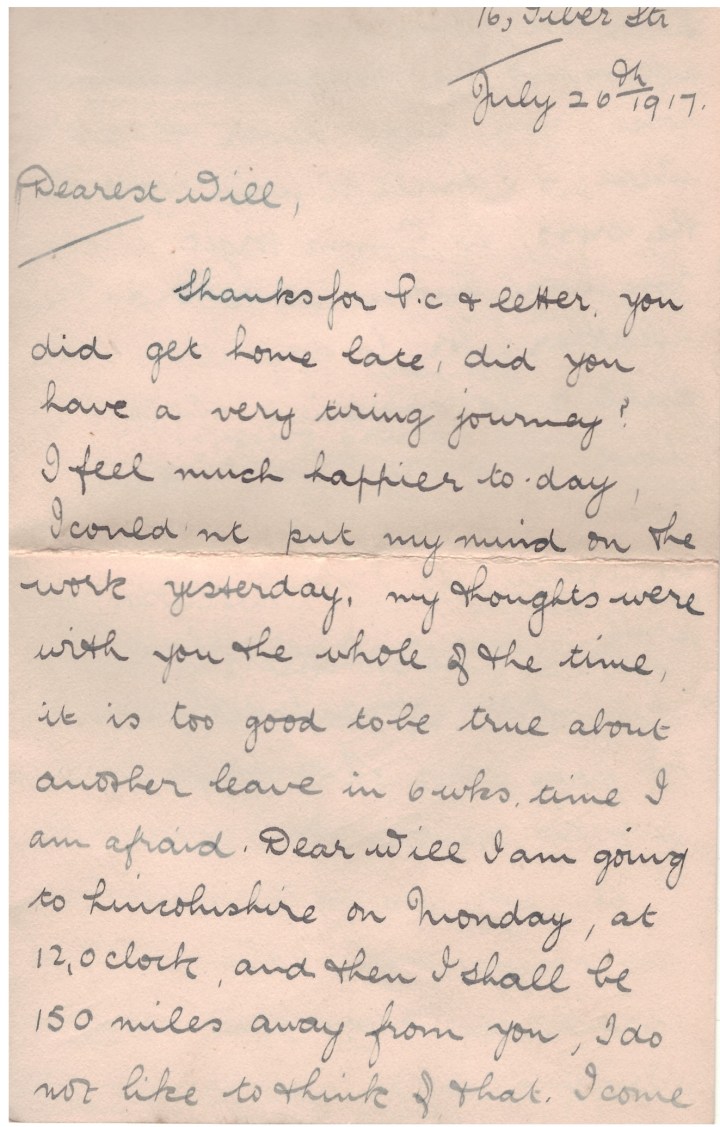 16, Tiber Str
July 26th 1917.
Dearest Will,
Thanks for P.c & letter, you
did get home late, did you
have a very tiring journey?
I feel much happier to-day,
I could'nt put my mind on the
work yesterday, my thoughts were
with you the whole of the time,
it is too good to be true about
another leave in 6 wks. time I
am afraid. Dear Will I am going
to Lincolnshire on Monday, at
12, oclock, and then I shall be
150 miles away from you, I do
not like to think of that. I come